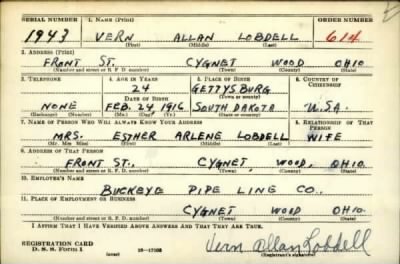 SERIAL NUMBER 1. NAME (Print) ORDER NUMBER
1943 VERN ALLAN LOBDELL 614
(First) (Middle) (Last)
2. ADDRESS (Print)
FRONT ST. CYGNET WOOD OHIO
(Number and street or R. F. D. number) (Town) (County) (State)
3. TELEPHONE 4. AGE IN YEARS 5. PLACE OF BIRTH 6. COUNTRY OF CITIZENSHIP
24 GETTYSBURG
DATE OF BIRTH (Town or county)
NONE FEB. 24, 1916 SOUTH DAKOTA U.S.A.
(Exchange) (Number) (Mo.) (Day) (Yr.) (State or country)
7. NAME OF PERSON WHO WILL ALWAYS KNOW YOUR ADDRESS 8. RELATIONSHIP OF THAT PERSON
MRS. ESTHER ARLENE LOBDELL WIFE
(Mr., Mrs., Miss) (First) (Middle) (Last)
9. ADDRESS OF THAT PERSON
FRONT ST., CYGNET WOOD, OHIO
(Number and street or R. F. D. number) (Town) (County) (State)
10. EMPLOYER'S NAME
BUCKEYE PIPE LINE CO.
11. PLACE OF EMPLOYMENT OR BUSINESS
CYGNET WOOD OHIO
(Number and street or R. F. D. number) (Town) (County) (State)
I AFFIRM THAT I HAVE VERIFIED ABOVE ANSWERS AND THAT THEY ARE TRUE.
REGISTRATION CARD Vern Allan Lobdell
D. S. S. Form 1 (Registrant's signature)